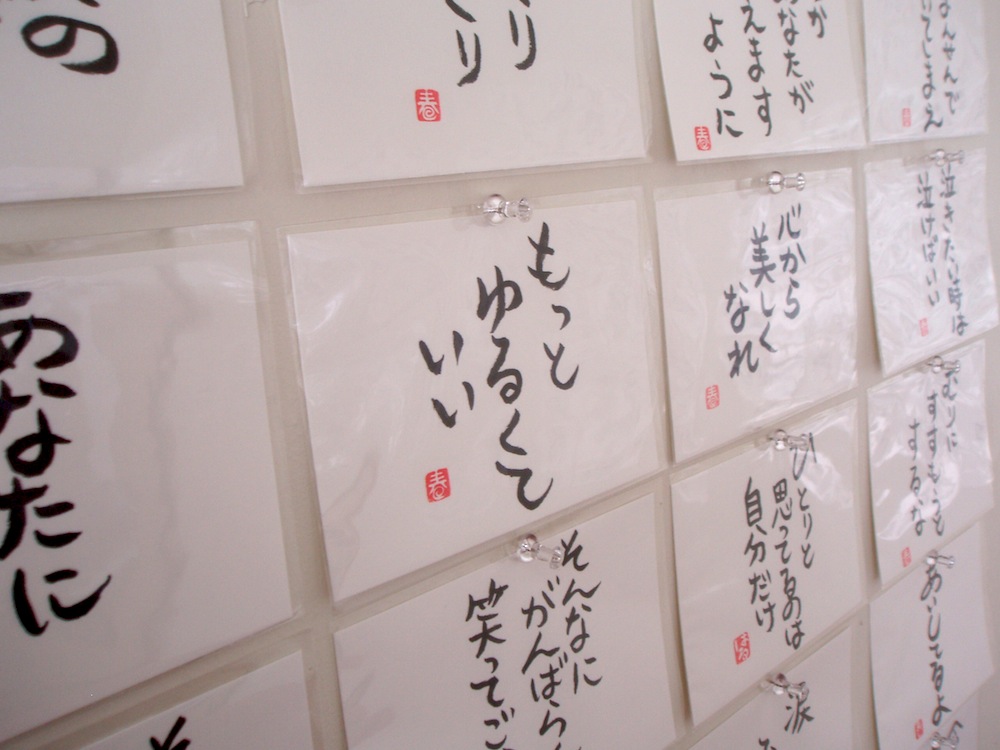 の
り
り
春
か
なたが
えます
ように
春
てしまえ
あなたに
もっと
ゆるくて
いい
春
心から
美しく
なれ
春
泣きたい時は
泣けばいい
そんなに
がんばら
笑ってご
ひとりと
思ってるのは
自分だけ
むりに
すすもうと
するな
あいしてるよ
涙